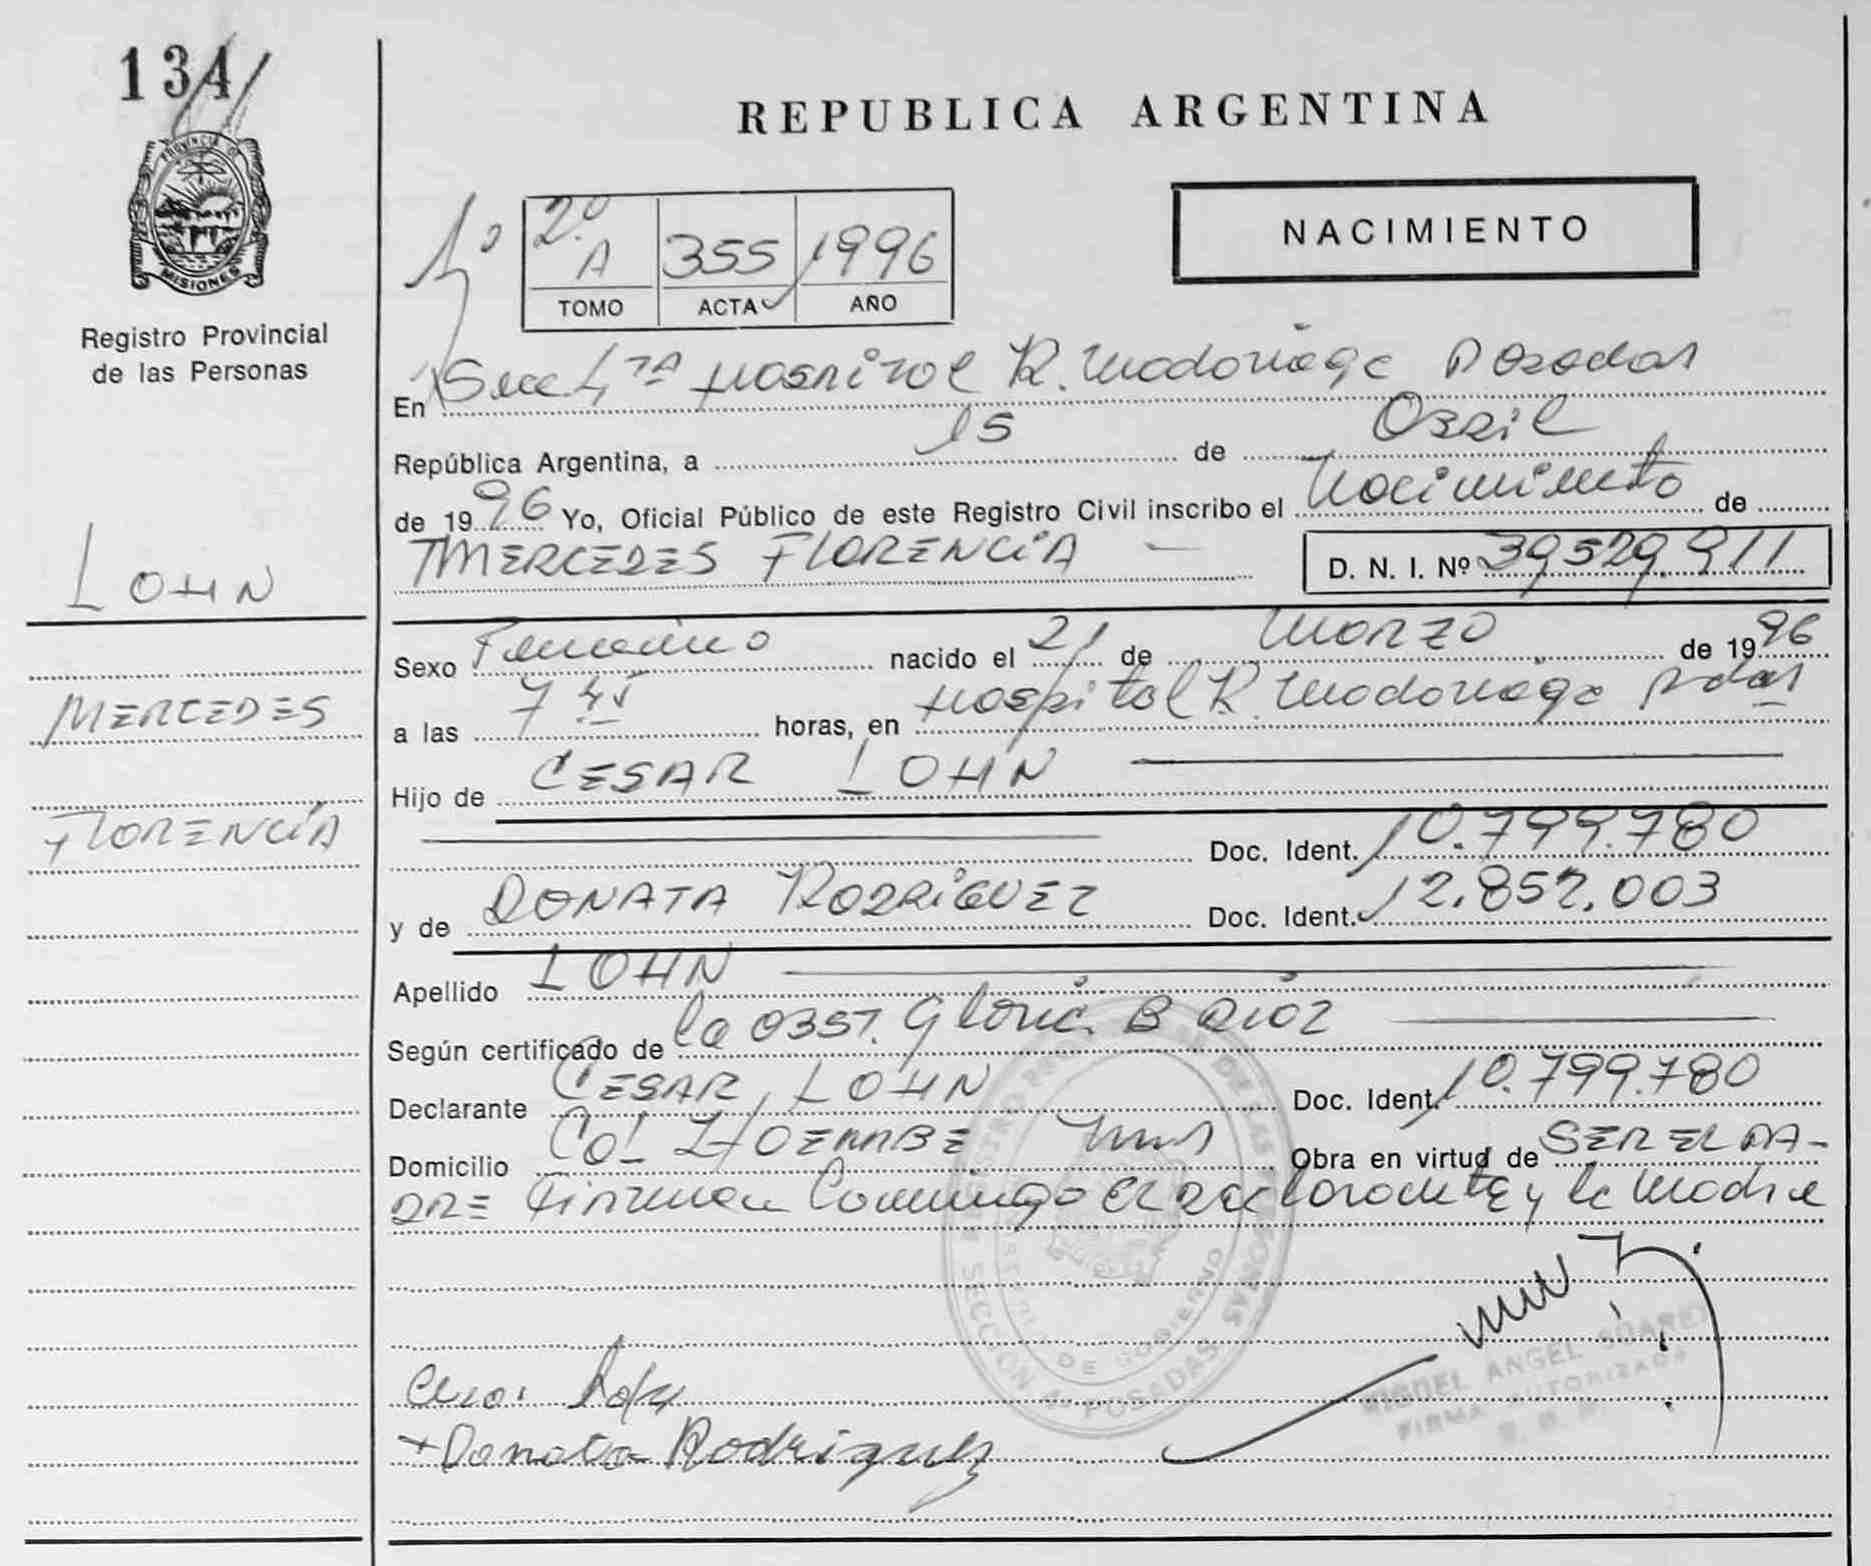 134
PROVINCIA D
MISIONES
Registro Provincial
de las Personas
LOHN
MERCEDES
FLORENCIA
REPUBLICA ARGENTINA
NACIMIENTO
1º 2º A 355 1996
TOMO ACTA AÑO
En Secc 4ta Hospital R. Madariaga Posadas
República Argentina, a 15 de Abril
de 1996 Yo, Oficial Público de este Registro Civil inscribo el Nacimiento de
MERCEDES FLORENCIA — D. N. I. Nº 39.529.911
Sexo Femenino nacido el 21 de Marzo de 1996
a las 7 45 horas, en Hospital R. Madariaga Pdas
Hijo de CESAR LOHN
Doc. Ident. 10.799.780
y de DONATA RODRIGUEZ Doc. Ident. 12.852.003
Apellido LOHN
Según certificado de la OBST. Gloria B Diaz
Declarante CESAR LOHN Doc. Ident. 10.799.780
Domicilio Col Mnes Obra en virtud de SER EL PA-
DRE Firman Conmigo el declarante y la Madre
SECCION 4 POSADAS
DE GOBIERNO
MIGUEL ANGEL SUAREZ
FIRMA AUTORIZADA
+ Donata Rodriguez